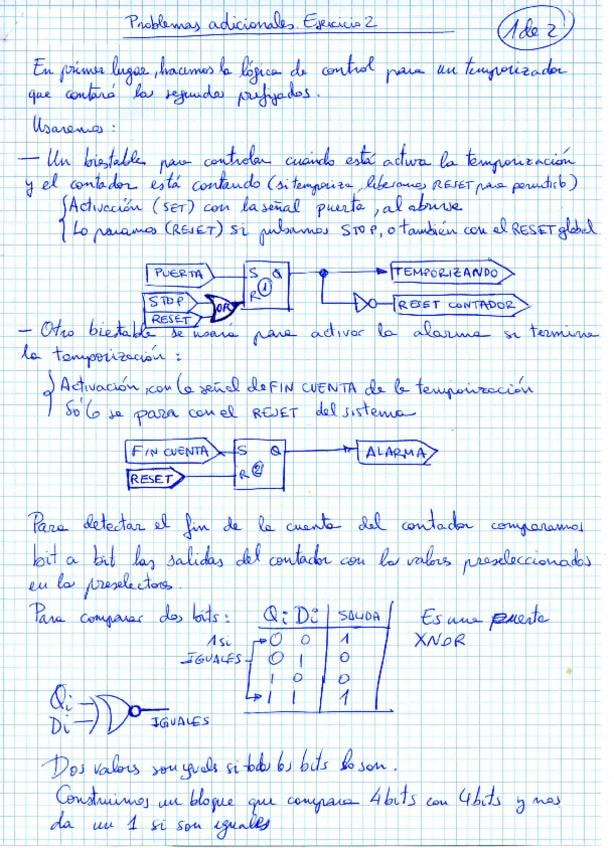 Problemas adicionales. Ejercicio 2
1 de 2
En primer lugar, hacemos la lógica de control para un temporizador
que contará los segundos prefijados.
Usaremos:
— Un biestable para controlar cuándo está activa la temporización
y el contador está contando (si temporiza, liberamos RESET para permitirlo)
Activación (SET) con la señal puerta, al abrirse
Lo paramos (RESET) si pulsamos STOP, o también con el RESET global
PUERTA
S Q
TEMPORIZANDO
STOP
OR
R
1
RESET
RESET CONTADOR
— Otro biestable se usará para activar la alarma si termina
la temporización:
Activación, con la señal de FIN CUENTA de la temporización
Sólo se para con el RESET del sistema
FIN CUENTA
S Q
ALARMA
RESET
R
2
Para detectar el fin de la cuenta del contador comparamos
bit a bit las salidas del contador con los valores preseleccionados
en los preselectores.
Para comparar dos bits:
Qi Di SALIDA
Es una puerta
1 si
0 0 1
XNOR
IGUALES
0 1 0
1 0 0
1 1 1
Qi
Di
IGUALES
Dos valores son iguales si todos los bits lo son.
Construimos un bloque que compara 4 bits con 4 bits y nos
da un 1 si son iguales